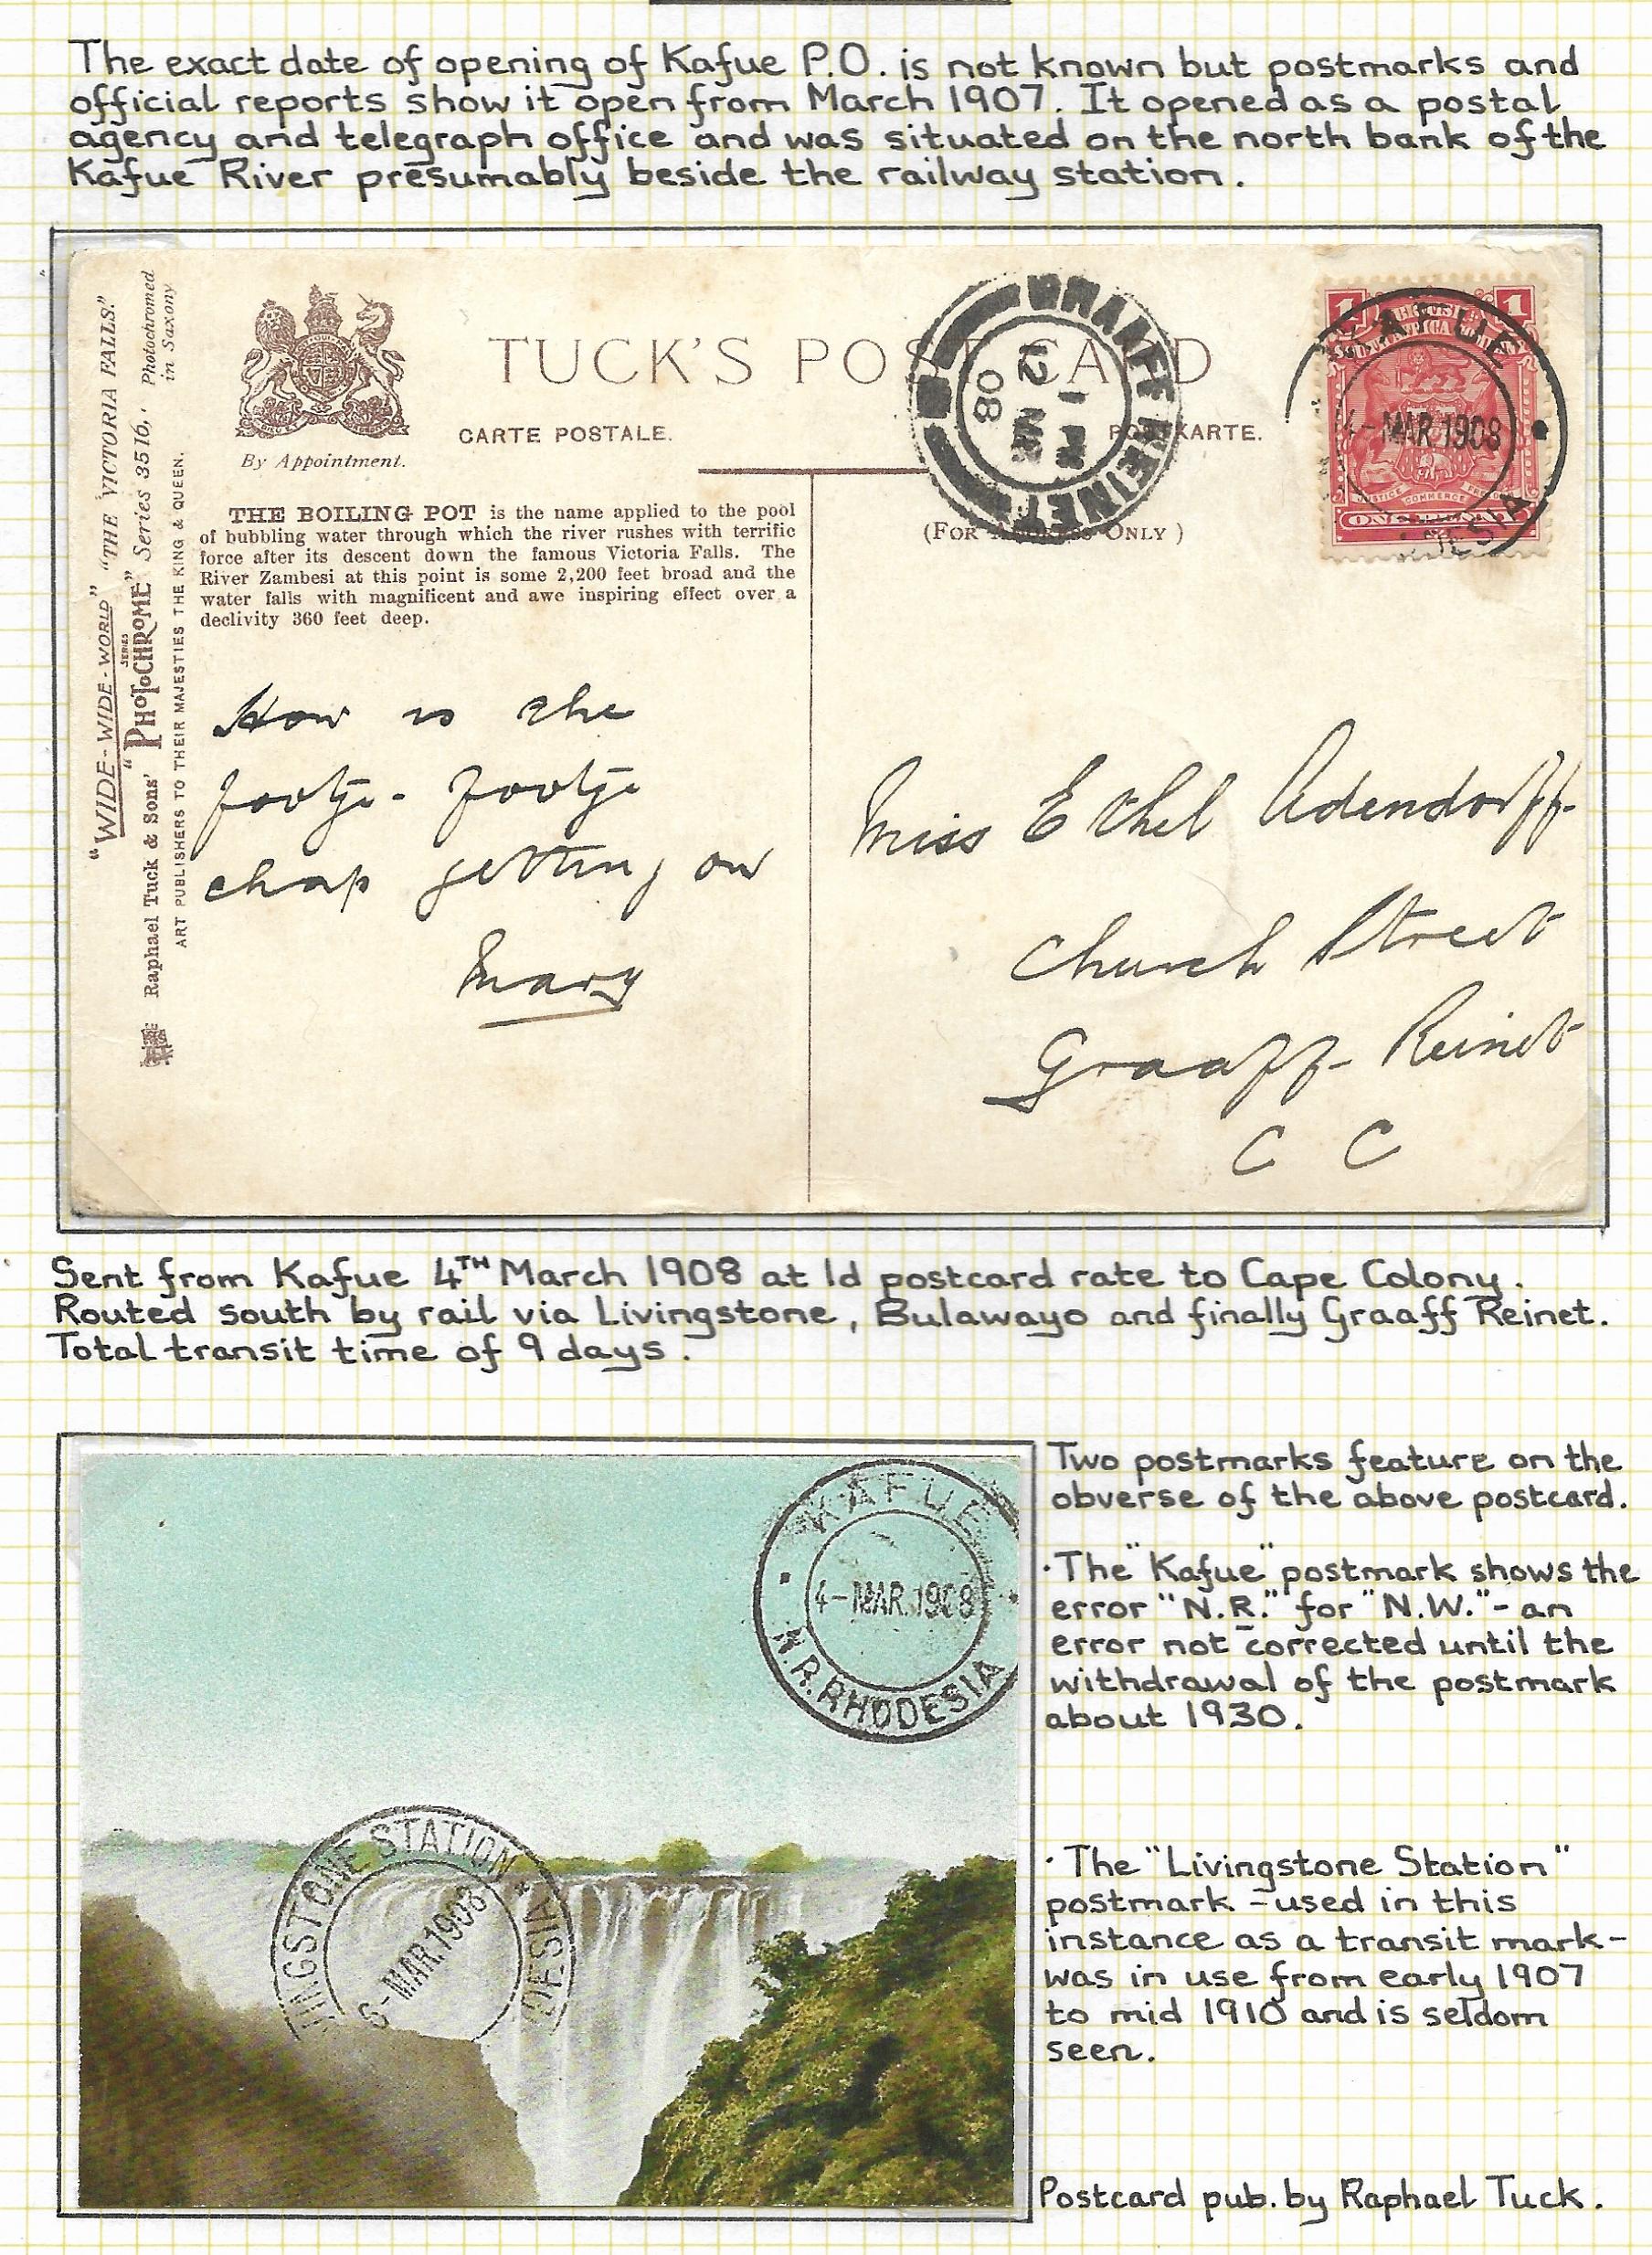 The exact date of opening of Kafue P.O. is not known but postmarks and
official reports show it open from March 1907. It opened as a postal
agency and telegraph office and was situated on the north bank of the
Kafue River presumably beside the railway station.
"WIDE-WIDE-WORLD" "THE VICTORIA FALLS."
Raphael Tuck & Sons' "PHOTOCHROME" SERIES Series 3516,. Photochromed
in Saxony
ART PUBLISHERS TO THEIR MAJESTIES THE KING & QUEEN.
By Appointment.
TUCK'S POST CARD
CARTE POSTALE.
POSTKARTE.
GRAAFF REINET
1 PM
12 MR
08
1 1
KAFUE
4-MAR.1908
JUSTICE COMMERCE
ONE PENNY
THE BOILING POT is the name applied to the pool
of bubbling water through which the river rushes with terrific
force after its descent down the famous Victoria Falls. The
River Zambesi at this point is some 2,200 feet broad and the
water falls with magnificent and awe inspiring effect over a
declivity 360 feet deep.
(FOR ADDRESS ONLY)
How is the
footje-footje
chap getting on
Mary
Miss Ethel Adendorff
Church Street
Graaff-Reinet
C C
Sent from Kafue 4TH March 1908 at 1d postcard rate to Cape Colony.
Routed south by rail via Livingstone, Bulawayo and finally Graaff Reinet.
Total transit time of 9 days.
KAFUE
4-MAR.1908
N.R.RHODESIA
INGSTONE STATION
6-MAR.1908
DESIA
Two postmarks feature on the
obverse of the above postcard.
·The "Kafue" postmark shows the
error "N.R." for "N.W."- an
error not corrected until the
withdrawal of the postmark
about 1930.
·The "Livingstone Station"
postmark -used in this
instance as a transit mark-
was in use from early 1907
to mid 1910 and is seldom
seen.
Postcard pub. by Raphael Tuck.